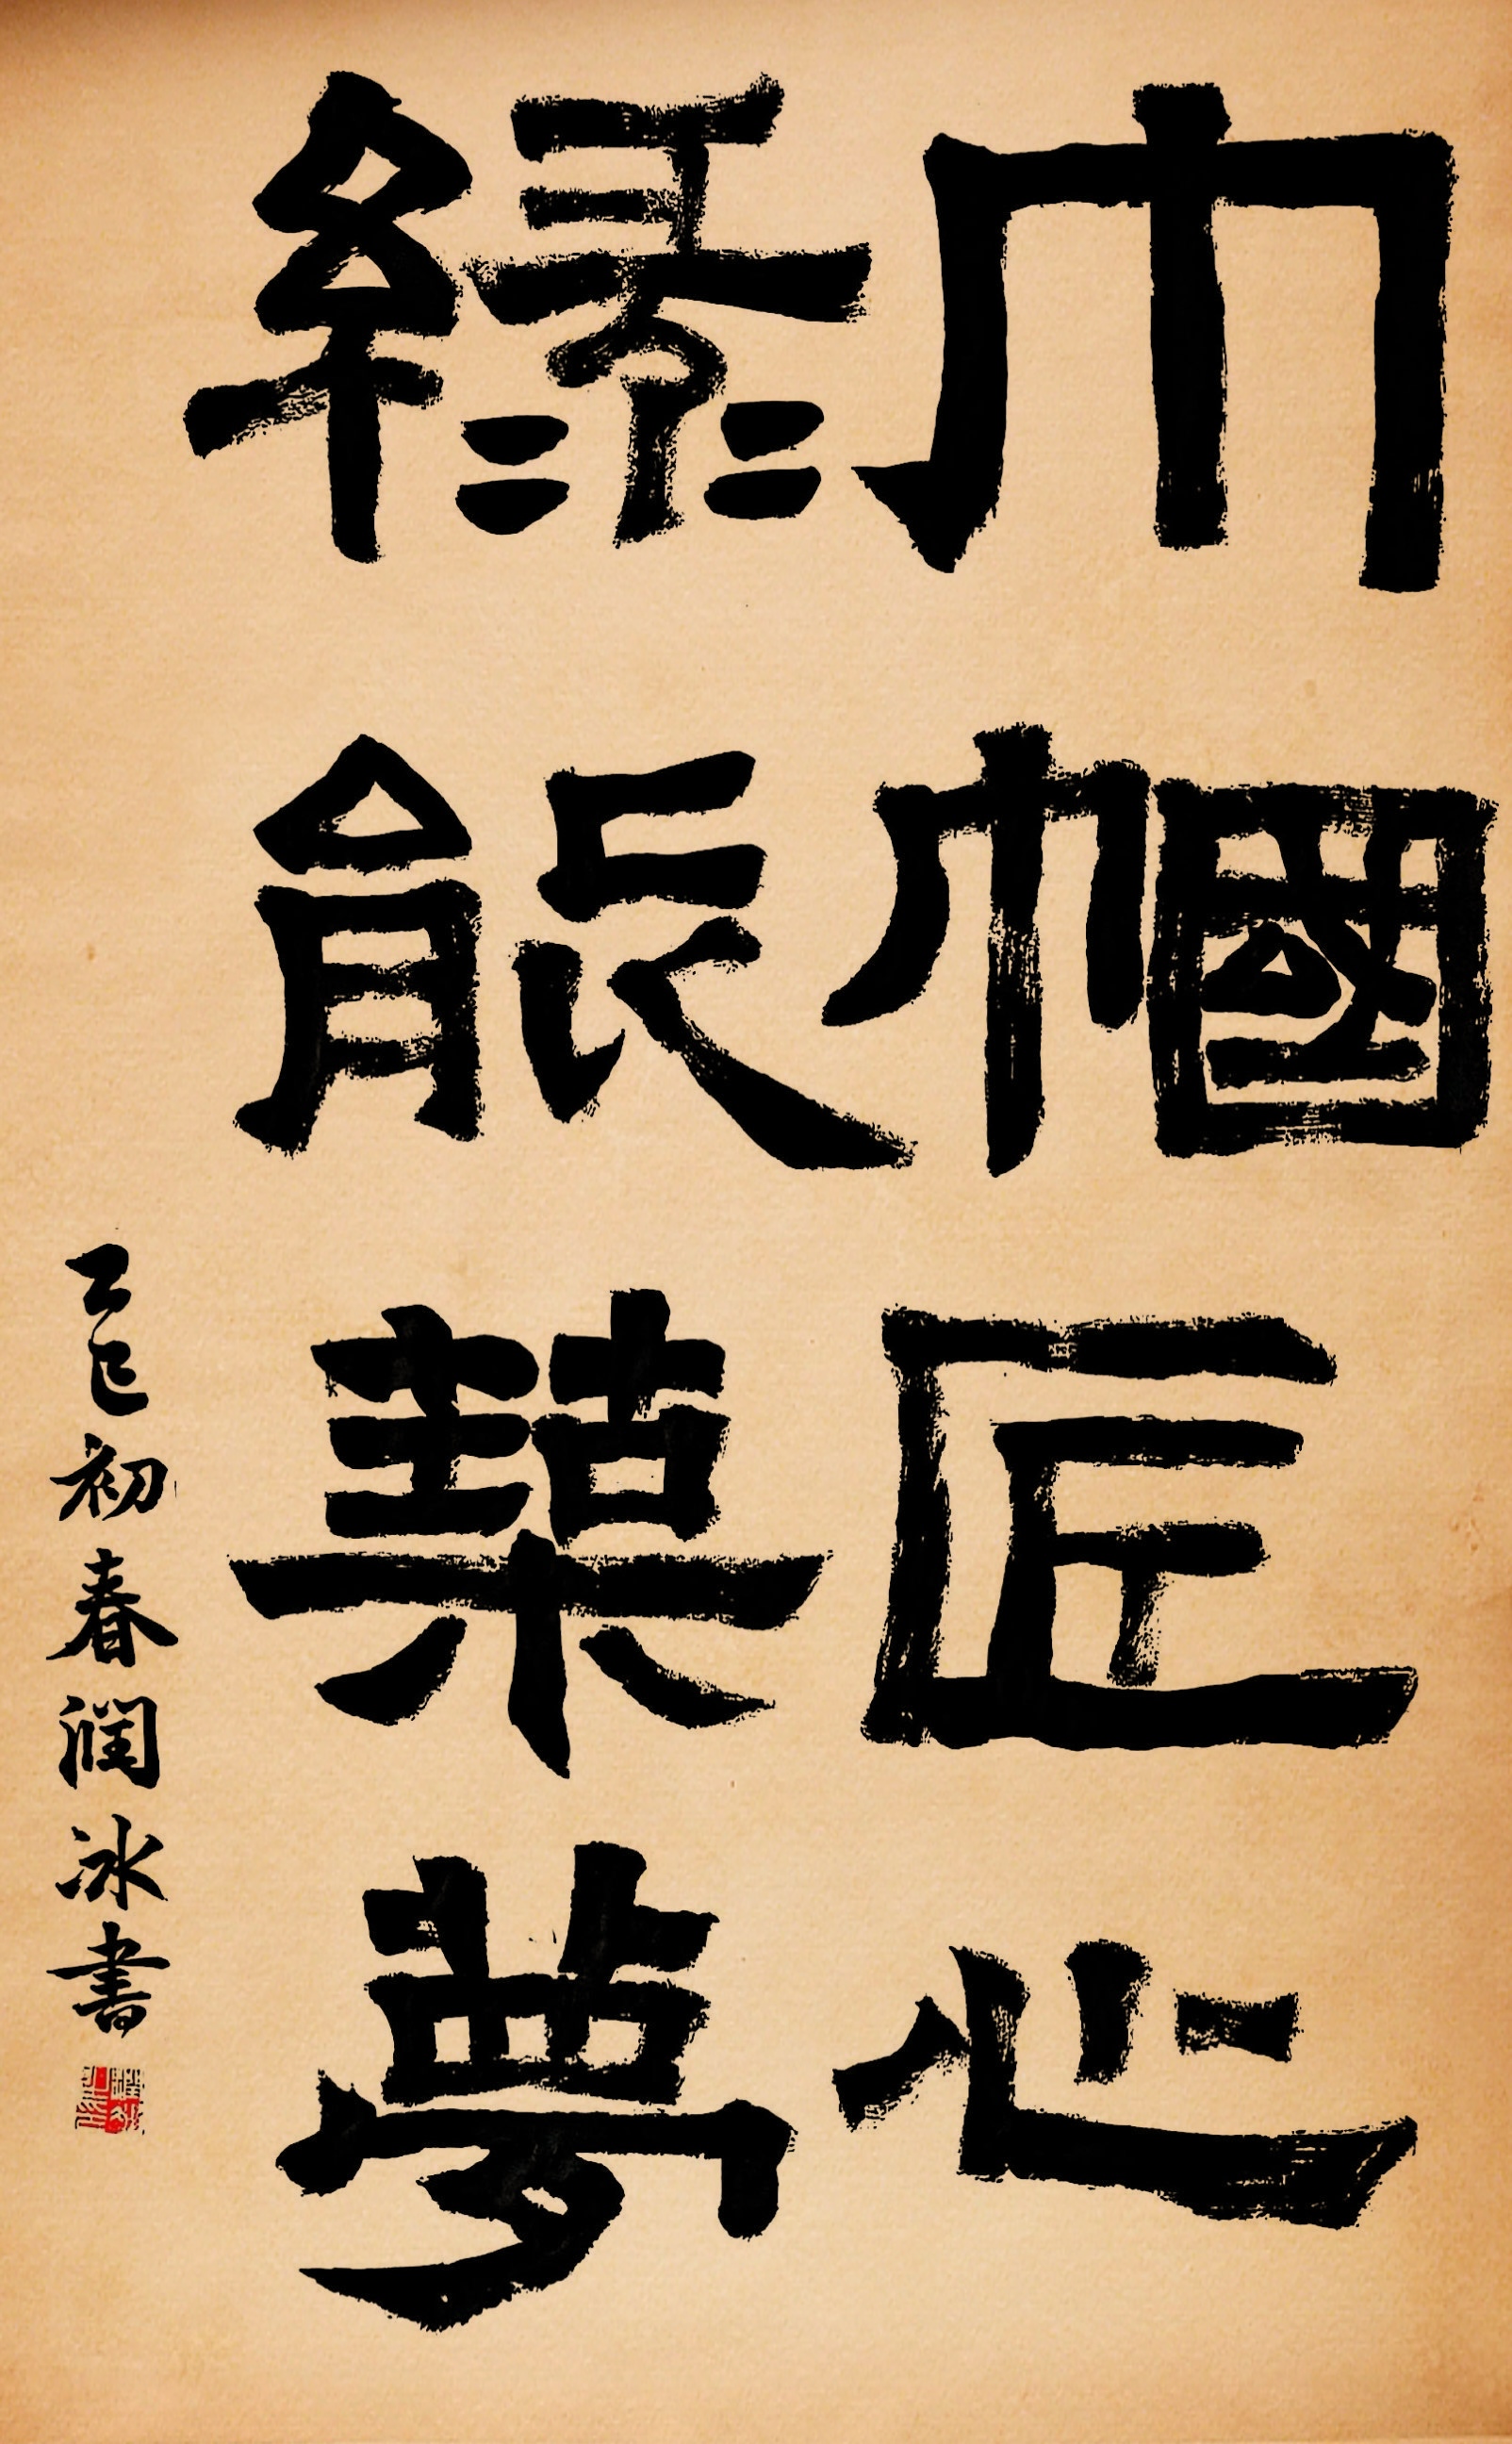 巾幗匠心
綠能築夢
乙巳初春潤冰書